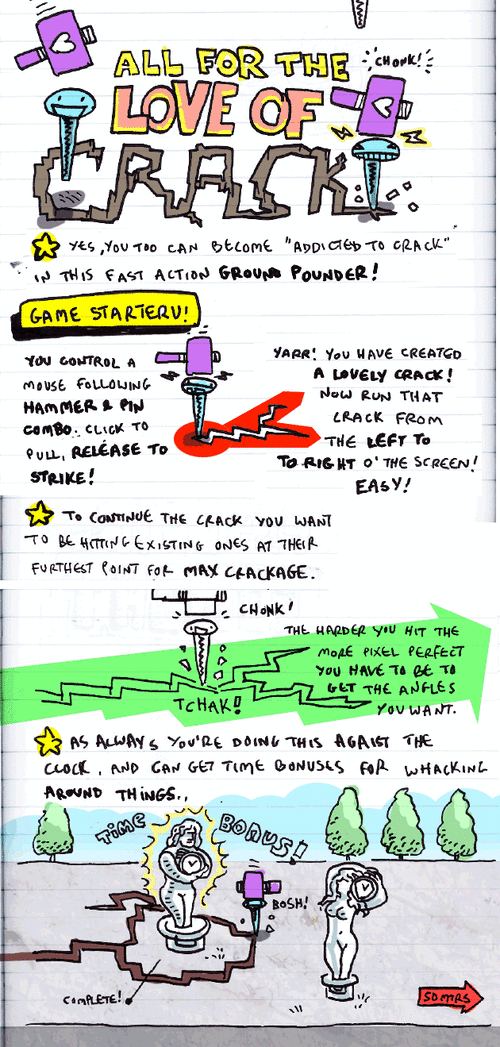 ALL FOR THE
CHONK!
LOVE OF
CRACK
YES, YOU TOO CAN BECOME "ADDICTED TO CRACK"
IN THIS FAST ACTION GROUND POUNDER!
GAME STARTERU!
YOU CONTROL A
MOUSE FOLLOWING
HAMMER & PIN
COMBO. CLICK TO
PULL, RELEASE TO
STRIKE!
YARR! YOU HAVE CREATED
A LOVELY CRACK!
NOW RUN THAT
CRACK FROM
THE LEFT TO
TO RIGHT O' THE SCREEN!
EASY!
TO CONTINUE THE CRACK YOU WANT
TO BE HITTING EXISTING ONES AT THEIR
FURTHEST POINT FOR MAX CRACKAGE.
CHONK!
THE HARDER YOU HIT THE
MORE PIXEL PERFECT
YOU HAVE TO BE TO
GET THE ANGLES
YOU WANT.
TCHAK!
AS ALWAYS YOU'RE DOING THIS AGAIST THE
CLOCK, AND CAN GET TIME BONUSES FOR WHACKING
AROUND THINGS..
TIME BONUS!
BOSH!
COMPLETE!
50 MTRS